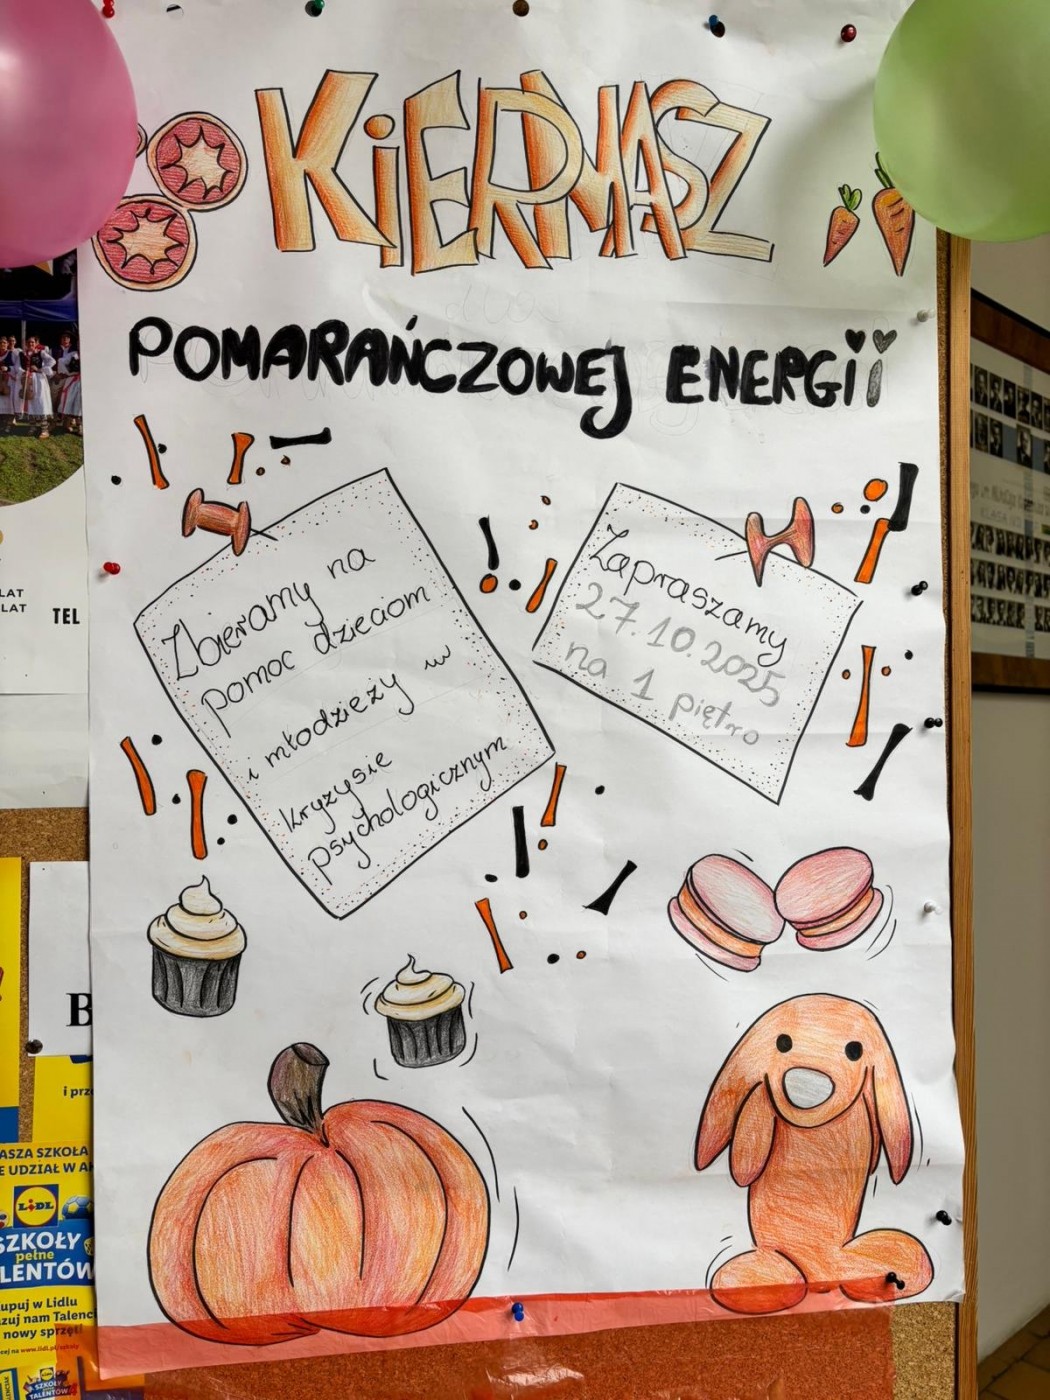 KiERMASZ
POMARAŃCZOWEJ ENERGii
Zbieramy na
pomoc dzieciom
i młodzieży w
kryzysie
psychologicznym
Zapraszamy
27.10.2025
na 1 piętro
LAT
LAT
TEL
B
i prz
ASZA SZKOŁA
E UDZIAŁ W A
LiDL
SZKOŁY
pełne
LENTÓW
upuj w Lidlu
nam Talen
nowy sprzęt!
www.lidl.pl
SZKOŁY
pełne
TALENTÓW